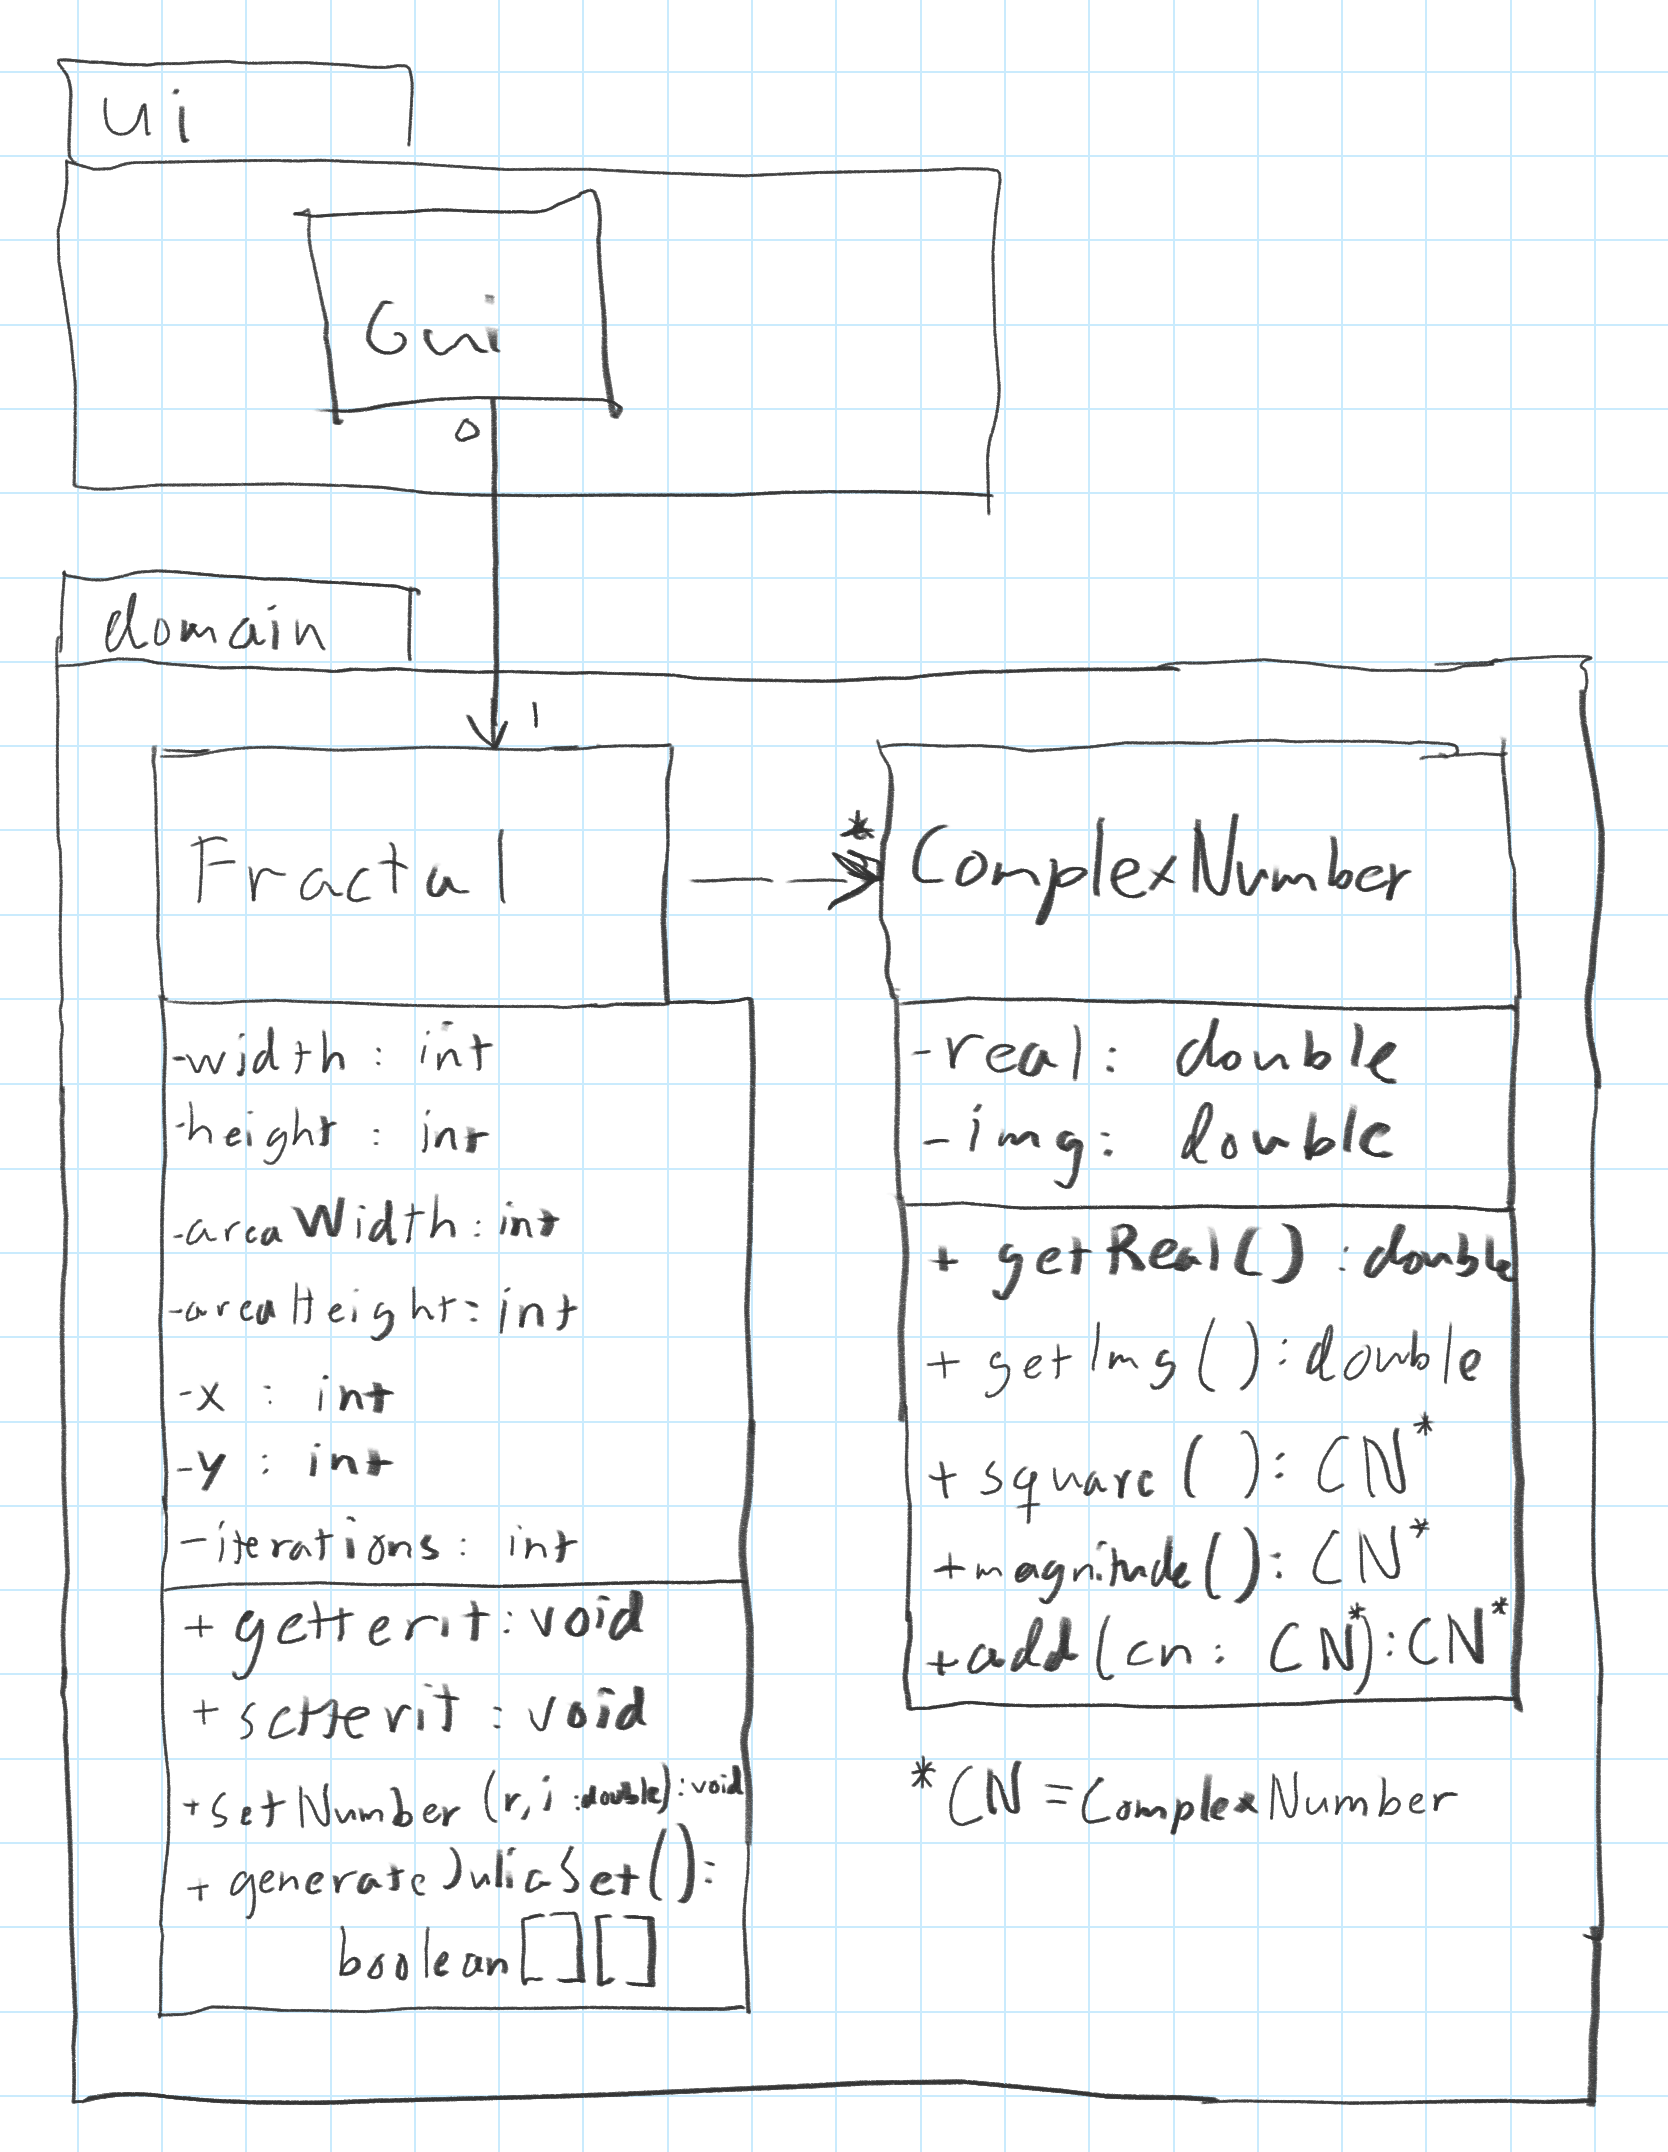 ui
Gui
0
domain
1
Fractal
*
ComplexNumber
-width : int
-height : int
-areaWidth : int
-areaHeight : int
-x : int
-y : int
-iterations : int
+ getterit : void
+ setterit : void
+setNumber (r, i : double) : void
+ generateJuliaSet() :
boolean[][]
-real : double
-img : double
+ getReal() : double
+ getImg() : double
+ square ( ) : CN*
+magnitude() : CN*
+add(cn : CN*) : CN*
*CN = ComplexNumber